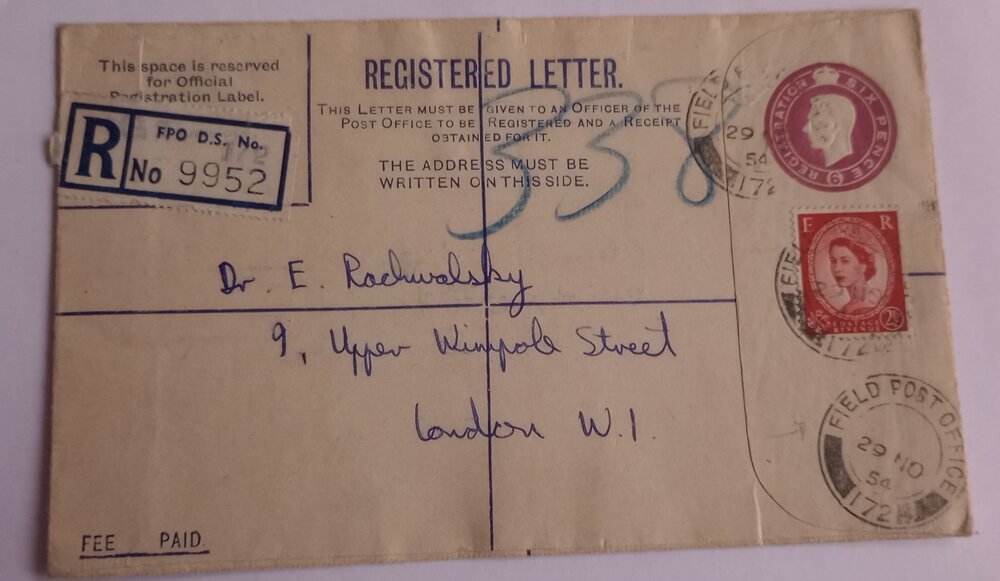 This space is reserved
for Official
Registration Label.
R
FPO D.S. No.
172
No 9952
REGISTERED LETTER.
THIS LETTER MUST BE GIVEN TO AN OFFICER OF THE
POST OFFICE TO BE REGISTERED AND A RECEIPT
OBTAINED FOR IT.
THE ADDRESS MUST BE
WRITTEN ON THIS SIDE.
338
REGISTRATION SIX PENCE
6
FIELD
29
54
172
E R
POSTAGE
REVENUE
2½
FIE
172
Dr. E. Rachwalsky
9, Upper Wimpole Street
London W.1.
FIELD POST OFFICE
29 NO
54
172
FEE PAID.